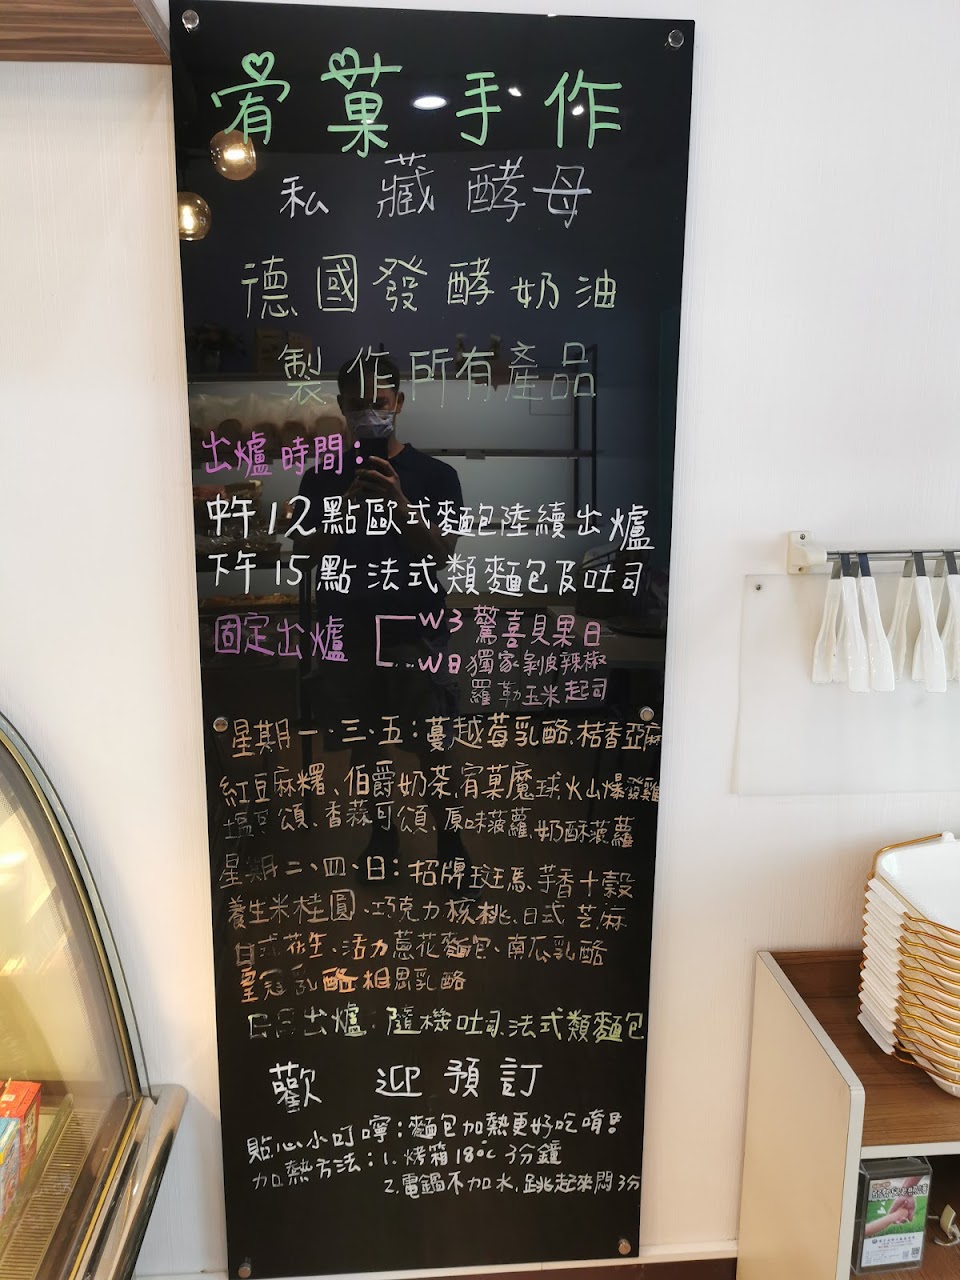 宥菓手作
私藏酵母
德國發酵奶油
製作所有產品
出爐時間：
中午12點歐式麵包陸續出爐
下午15點法式類麵包及吐司
固定出爐
W3驚喜貝果日
W日獨家剝皮辣椒
羅勒玉米起司
星期一.三.五：蔓越莓乳酪、桔香亞麻
紅豆麻糬、伯爵奶茶、宥菓魔球、火山爆發雞
塩可頌、香蒜可頌、原味菠蘿、奶酥菠蘿
星期二、四、日：招牌斑馬、芋香十穀
養生米桂圓、巧克力核桃、日式芝麻
日式花生、活力蔥花麵包、南瓜乳酪
皇冠乳酪、相思乳酪
每日出爐：隨機吐司、法式類麵包
歡迎預訂
貼心小叮嚀：麵包加熱更好吃唷！
加熱方法：1.烤箱180℃3分鐘
2.電鍋不加水，跳起來悶3分